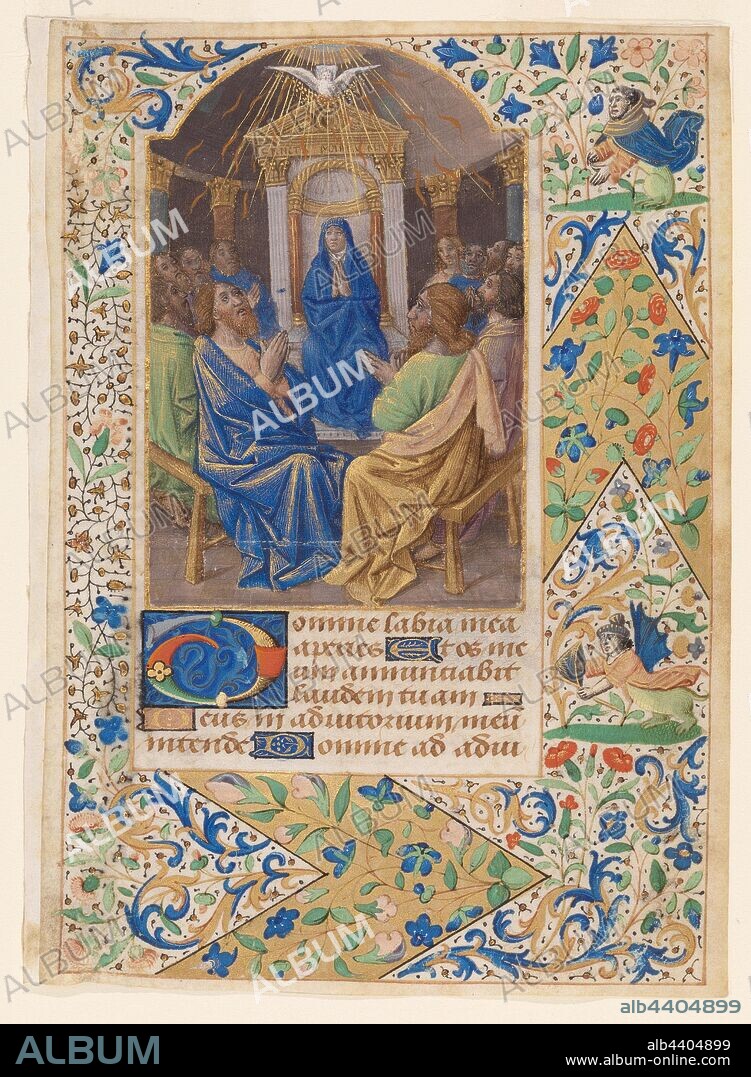 Domine labia mea
aperies Et os me
um annunciabit
laudem tuam
Deus in adiutorium meū
intende Domine ad adiu
ALBUM
alb4404899
ALBUM
alb4404899
www.album-online.com